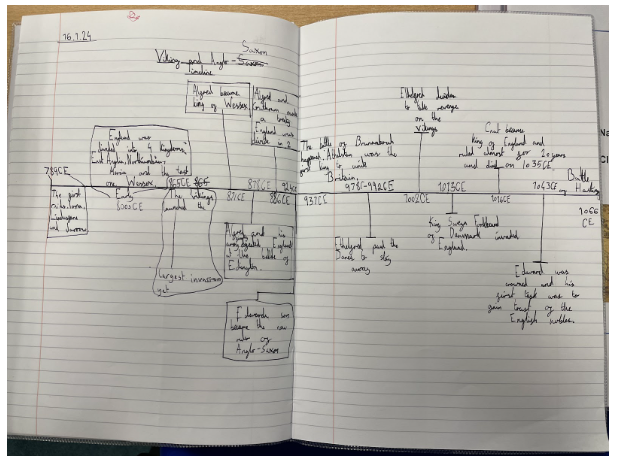 16.1.24
Saxon
Viking and Anglo-Saxon
timeline
Alfred became
king of Wessex
Alfred and
Guthrum made
a treaty
England was
in 2
England was
into 4 Kingdoms
East Anglia, Northumbria,
Mercia and the last
one Wessex
789CE
865CE
871CE
878CE
886CE
924CE
The first
and
Early
800sCE
The Vikings
the
largest invasion
yet
Alfred and his
army defeated England
at the battle of
Edington
Edward's son
became the new
ruler of
Anglo-Saxon
The battle of Brunanburh
happened. Athelstan was the
first king to unite
Britain.
937CE
978-992CE
Ethelred paid the
Danes to stay
away
Ethelred decides
to take revenge
on the
Vikings
1002CE
1013CE
King Sweyn Forkbeard
of Denmark invaded
England.
Cnut became
King of England and
ruled almost for 20 years
and died on 1035CE
1016CE
1043CE
Edward was
crowned and his
first task was to
gain trust of the
English nobles.
Battle
of Hastings
1066
CE